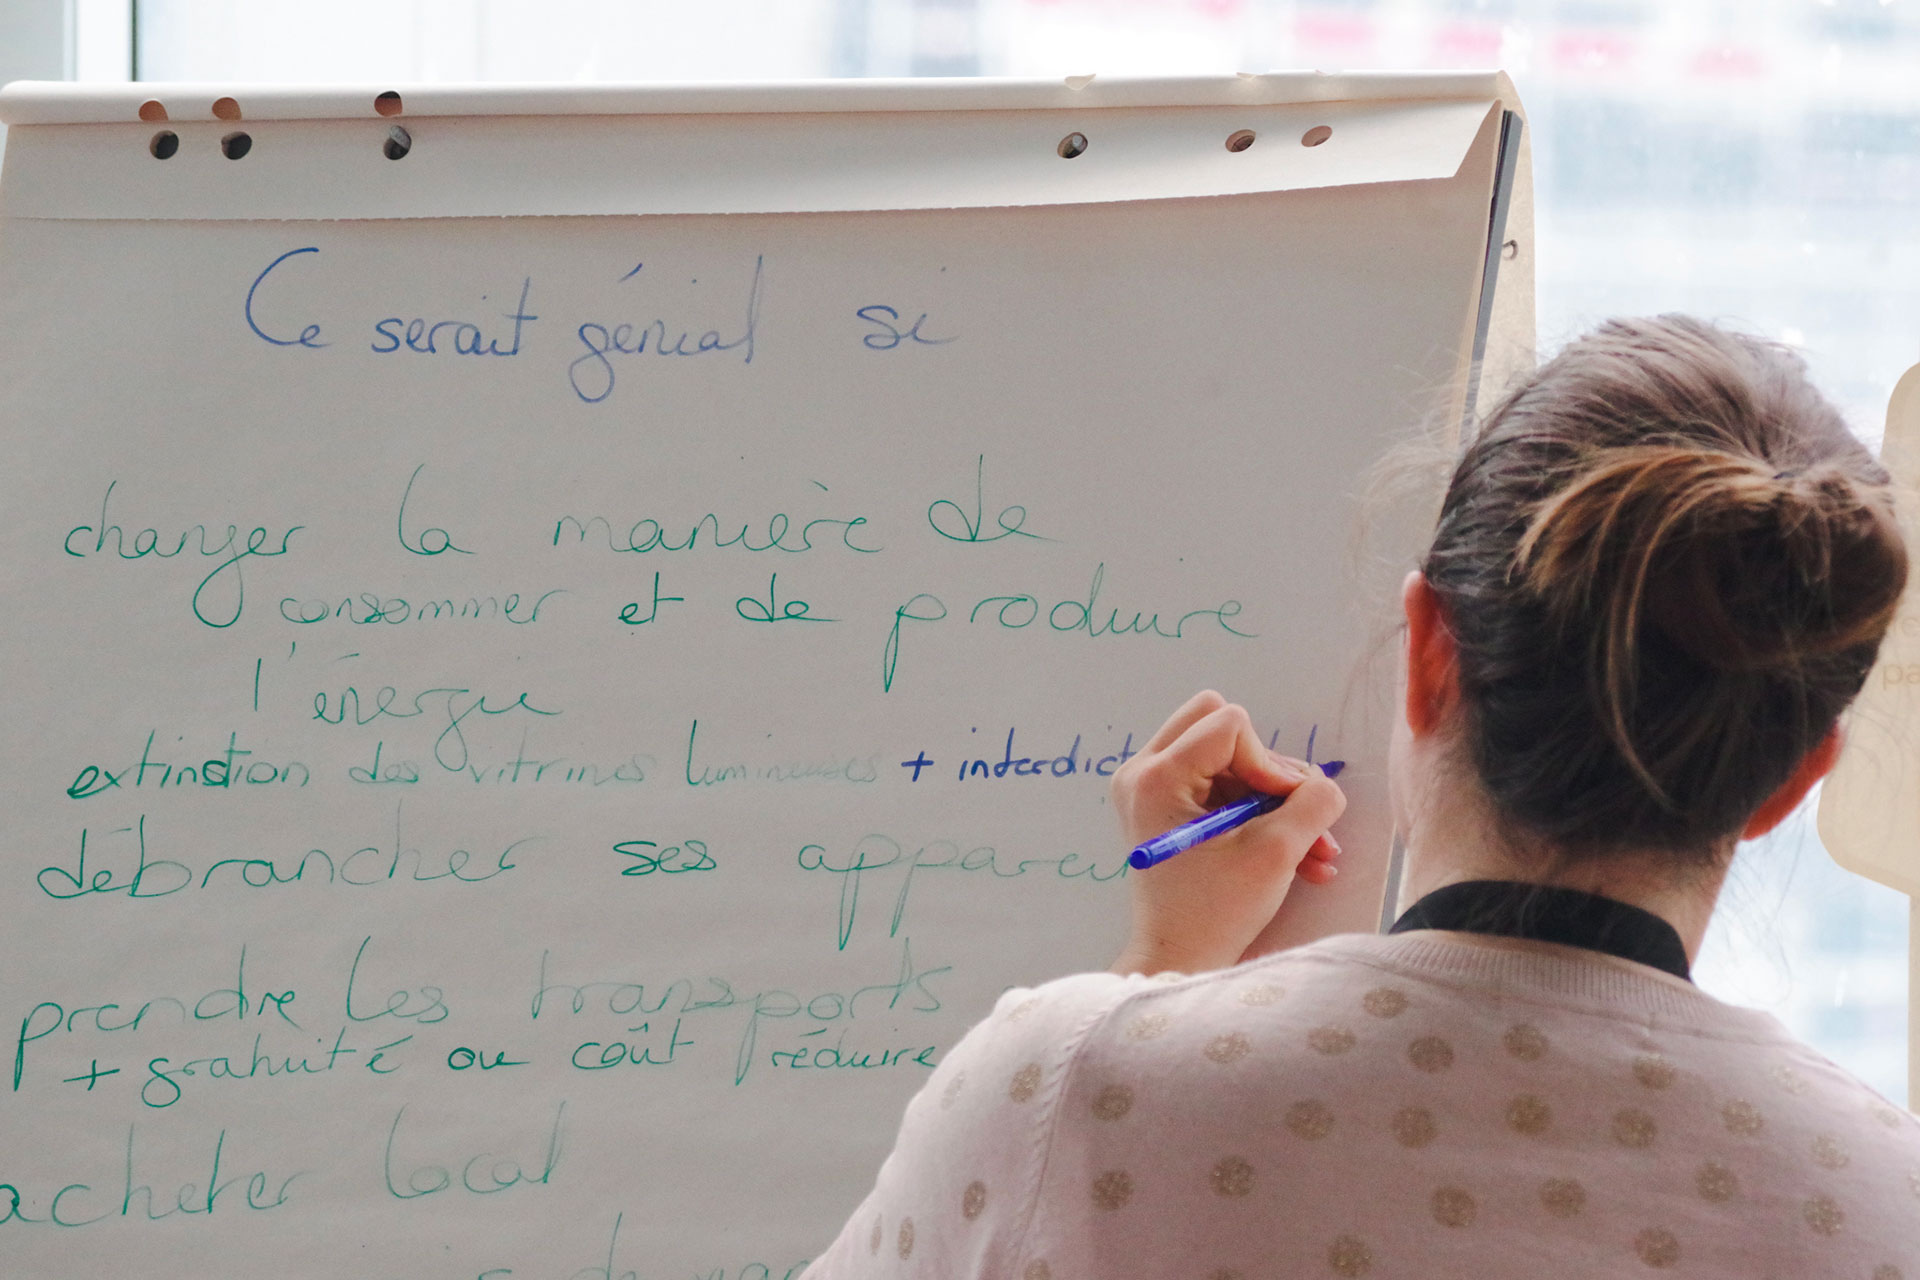 Ce serait génial si
changer la manière de
consommer et de produire
l'énergie
extinction des vitrines lumineuses + interdict
débrancher ses appareil
prendre les transports
+ gratuité ou coût réduire
acheter local